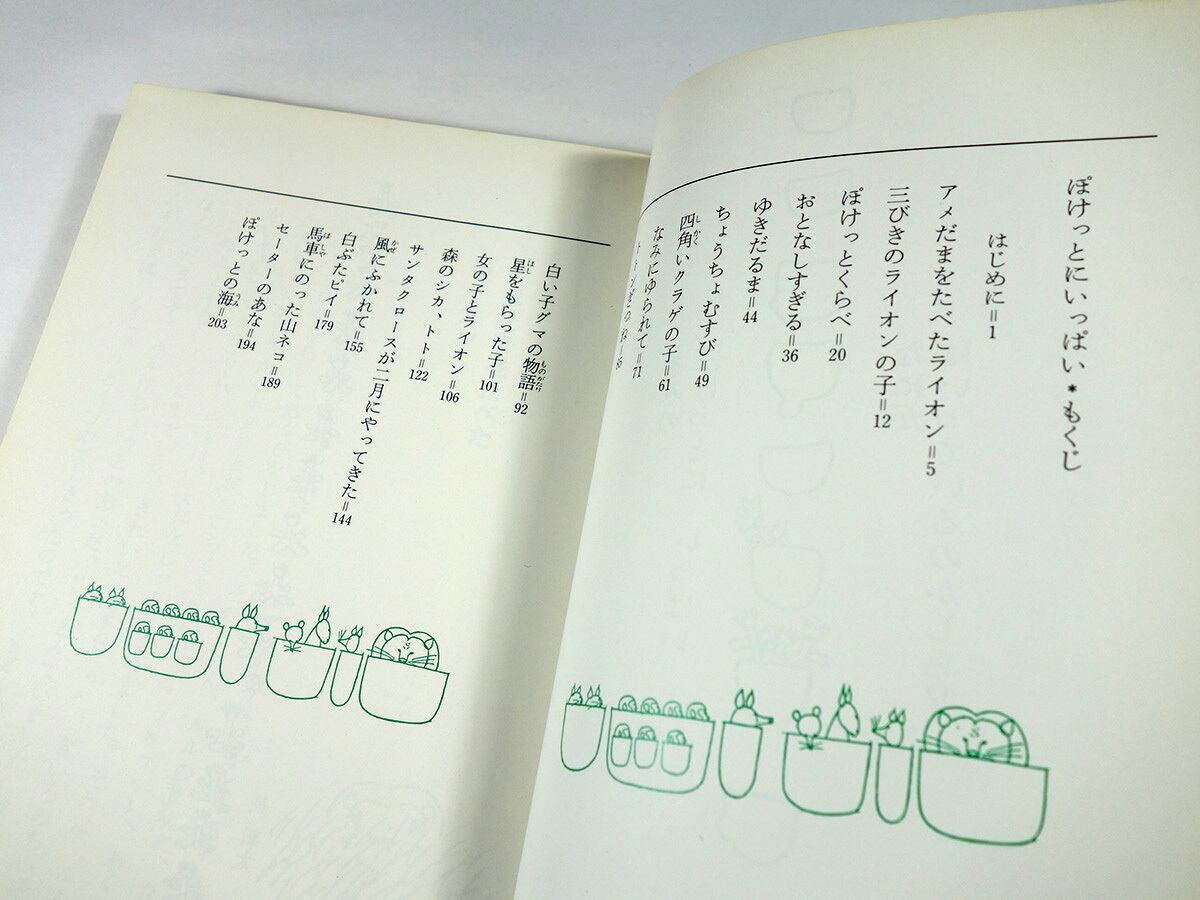 ぽけっとにいっぱい＊もくじ
はじめに＝1
アメだまをたべたライオン＝5
三びきのライオンの子＝12
ぽけっとくらべ＝20
おとなしすぎる＝36
ゆきだるま＝44
ちょうちょむすび＝49
四角いクラゲの子＝61
なみにゆられて＝71
白い子グマの物語＝92
星をもらった子＝101
女の子とライオン＝106
森のシカ、トト＝122
サンタクロースが二月にやってきた＝144
風にふかれて＝155
白ぶたピイ＝179
馬車にのった山ネコ＝189
セーターのあな＝194
ぽけっとの海＝203